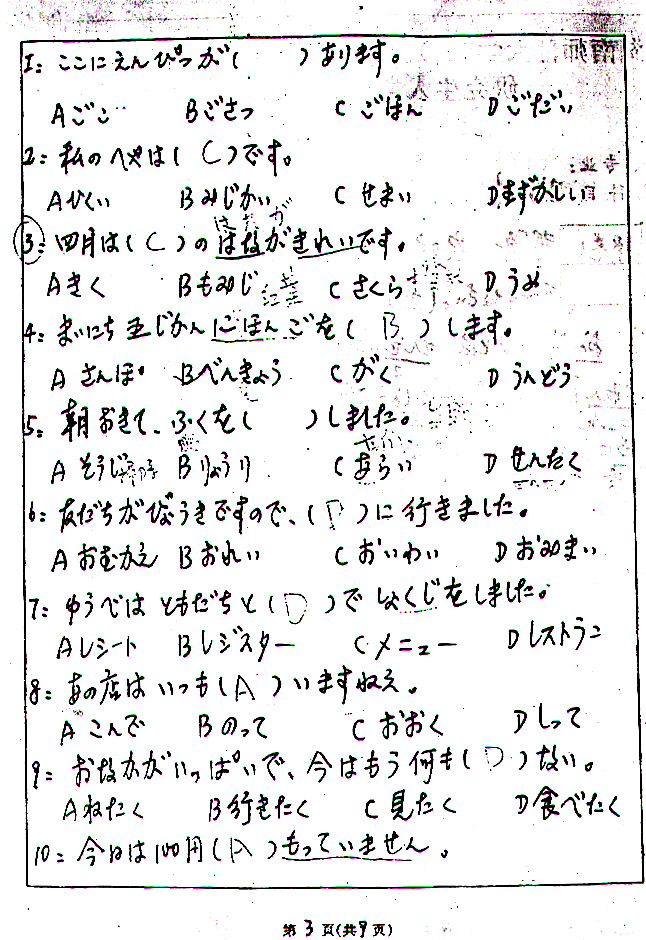 1: ここにえんぴつが(　　)あります。
Aごこ　Bごさつ　Cごほん　Dごだい
2: 私のへやは(C)です。
Aひくい　Bみじかい　Cせまい　Dむずかしい
はながが
3: 四月は(C)の はながきれいです。
Aきく　Bもみじ 红葉　Cさくら　Dうめ
4: まいにち 五じかん にほんごを(B)します。
Aさんぽ　Bべんきょう　Cがく　Dうんどう
5: 朝おきて、ふくを(　　)しました。
Aそうじ　Bりょうり　Cあらい　Dせんたく
6: 友だちがびょうきですので、(D)に行きました。
Aおむかえ　Bおれい　Cおいわい　Dおみまい
7: ゆうべは ともだちと(D)で しょくじをしました。
Aレシート　Bレジスター　Cメニュー　Dレストラン
8: あの店は いつも(A)いますねえ。
Aこんで　Bのって　Cおおく　Dしって
9: おなかがいっぱいで、今はもう何も(D)ない。
Aねたく　B行きたく　C見たく　D食べたく
10: 今日は100円(A)もっていません。
第3页(共9页)